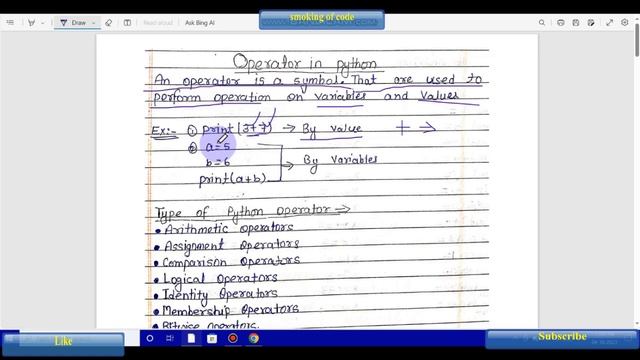 smoking of code
Draw
Read aloud
Ask Bing AI
Operator in python
An operator is a symbol. That are used to
perform operation on variables and values
Ex:- ① print(3+7) → By value + →
② a=5
b=6 → By variables
print(a+b)
Type of Python operator →
• Arithmetic operators
• Assignment operators
• Comparison operators
• Logical operators
• Identity operators
• Membership operators
• Bitwise operators.
Like
Subscribe